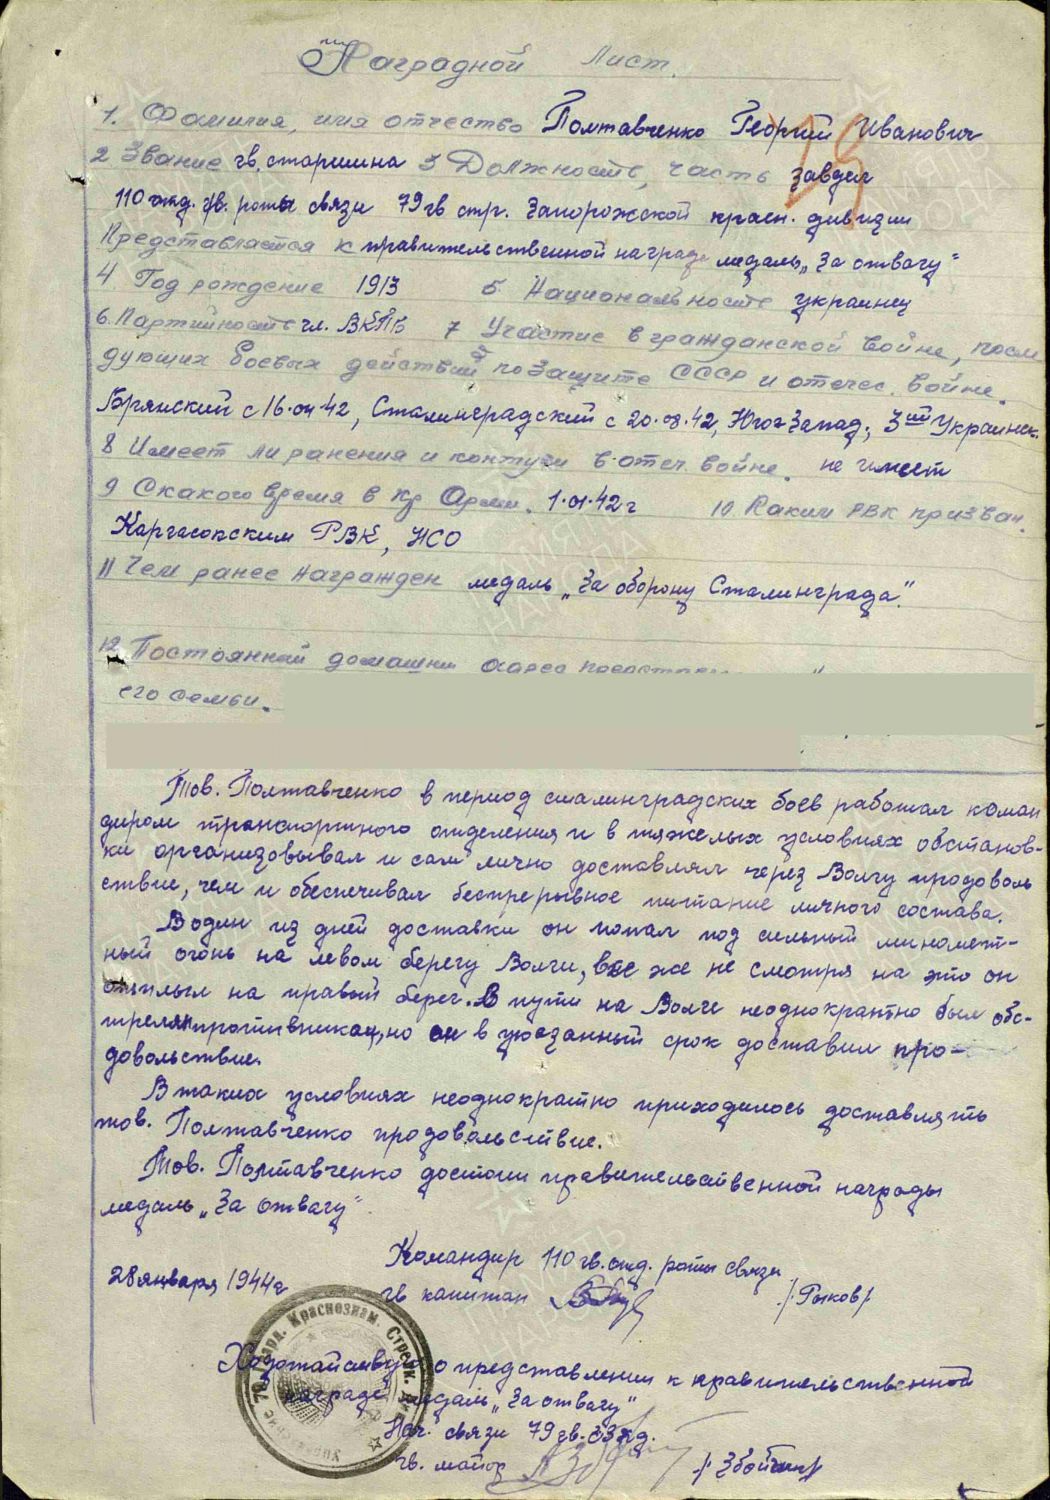 Наградной Лист.
1. Фамилия, имя отчество Полтавченко Георгий Иванович
2 Звание гв. старшина 3 Должность, часть завдел
110 отд. гв. роты связи 79 гв стр. Запорожской красн. дивизии
Представляется к правительственной награде медаль „За отвагу"
4. Год рождение 1913 5. Национальность украинец
6. Партийность чл. ВКПБ 7 Участие в гражданской войне, после
дующих боевых действий по защите СССР и отечес. войне.
Брянский с 16.04.42, Сталинградский с 20.08.42, Югозапад., 3ий Украинск.
8 Имеет ли ранения и контузии в отеч. войне. не имеет
9 Скакого время в Кр Арми. 1.01.42 г 10. Каким РВК призван.
Каргасокским РВК, НСО
11 Чем ранее Награжден медаль „За оборону Сталинграда".
12 Постоянный домашний адрес
его семьи.
Тов. Полтавченко в период сталинградских боев работал коман
диром транспортного отделения и в тяжелых условиях обстанов-
ки организовывал и сам лично доставлял через Волгу продоволь
ствие, чем и обеспечивал беспрерывное питание личного состава.
В один из дней доставки он попал под сильный миномет-
ный огонь на левом берегу Волги, все же не смотря на это он
отплыл на правый берег. В пути на Волге неоднократно был обс-
трелян противником, но он в указанный срок доставил про-
довольствие.
В таких условиях неоднократно приходилось доставлять
тов. Полтавченко продовольствие.
Тов. Полтавченко достоин правительственной награды
медаль „За отвагу"
Командир 110 гв. отд. роты связи
28 января 1944г гв капитан /Рыков/
Ходотайствую о представлении к правительственной
награде медаль „За отвагу"
Нач. связи 79 гв. сзкд.
гв. майор
Гвард. Краснознам. Стрелк.